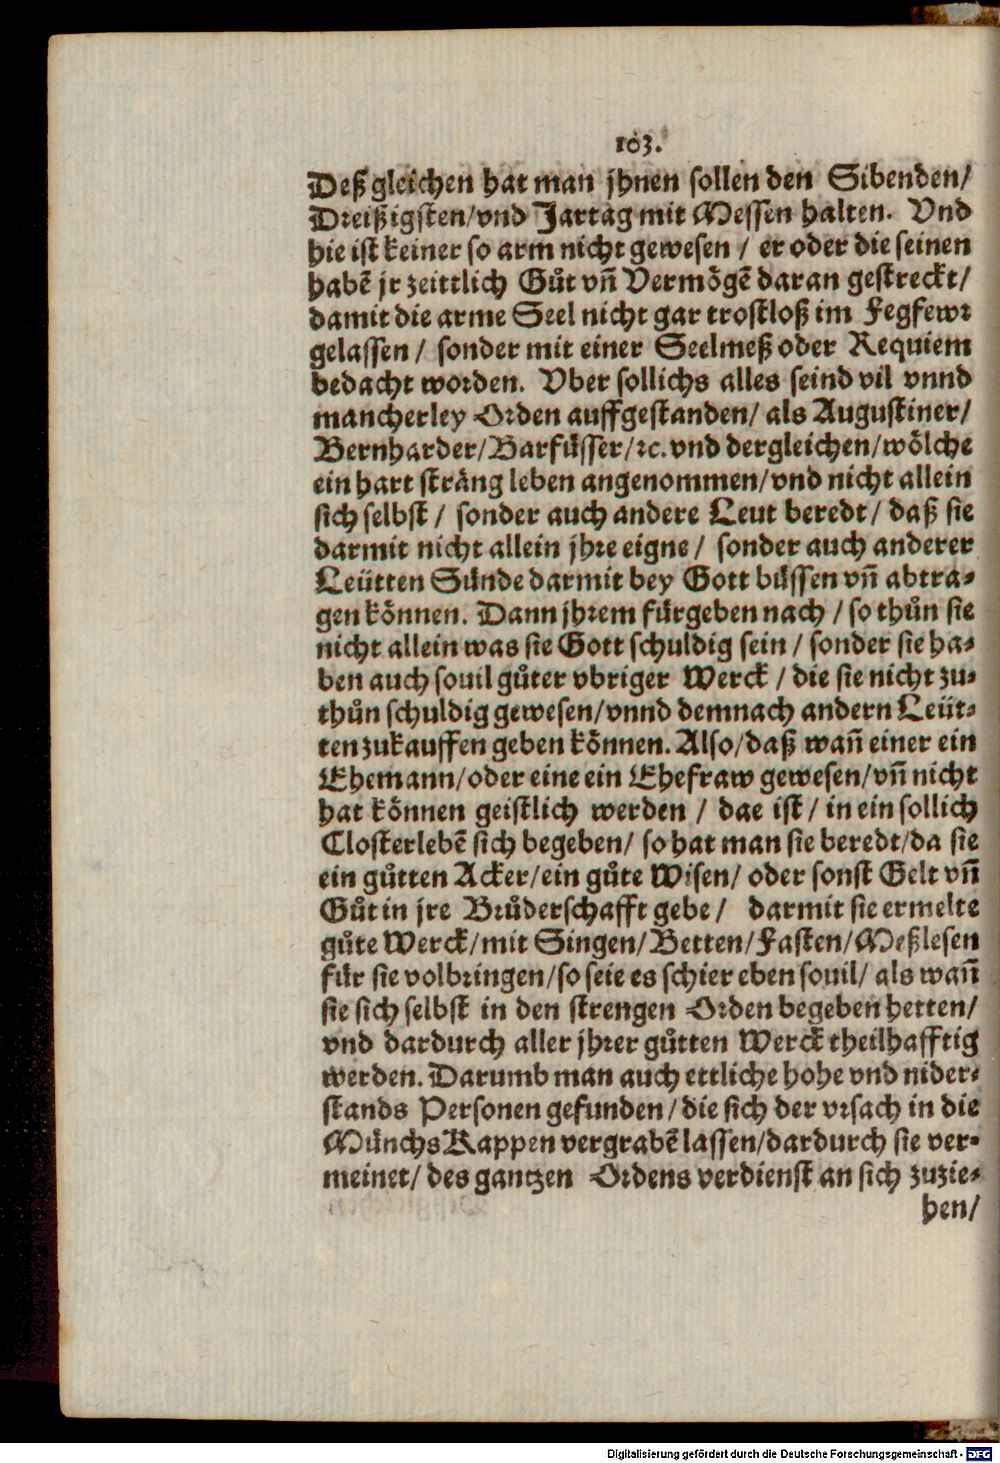 103.
Deß gleichen hat man jhnen sollen den Sibenden/
Dreißigsten/vnd Jartag mit Messen halten. Vnd
hie ist keiner so arm nicht gewesen / er oder die seinen
habē jr zeittlich Gůt vñ Vermögē daran gestreckt/
damit die arme Seel nicht gar trostloß im Fegfewr
gelassen / sonder mit einer Seelmeß oder Requiem
bedacht worden. Vber sollichs alles seind vil vnnd
mancherley Orden auffgestanden/ als Augustiner/
Bernharder/Barfüsser/ꝛc. vnd dergleichen/wölche
ein hart sträng leben angenommen/vnd nicht allein
sich selbst / sonder auch andere Leut beredt/ daß sie
darmit nicht allein jhre eigne / sonder auch anderer
Leütten Sünde darmit bey Gott büssen vñ abtra-
gen können. Dann jhrem fürgeben nach / so thůn sie
nicht allein was sie Gott schuldig sein / sonder sie ha-
ben auch souil gůter vbriger Werck / die sie nicht zu-
thůn schuldig gewesen/vnnd demnach andern Leüt-
ten zukauffen geben können. Also/daß wañ einer ein
Ehemann/oder eine ein Ehefraw gewesen/vñ nicht
hat können geistlich werden / dae ist / in ein sollich
Closterlebē sich begeben/ so hat man sie beredt/da sie
ein gůtten Acker/ein gůte Wisen/ oder sonst Gelt vñ
Gůt in jre Brůderschafft gebe / darmit sie ermelte
gůte Werck/mit Singen/Betten/Fasten/Meßlesen
für sie volbringen/so seie es schier eben souil/ als wañ
sie sich selbst in den strengen Orden begeben hetten/
vnd dardurch aller jhrer gůtten Werck theilhafftig
werden. Darumb man auch ettliche hohe vnd nider-
stands Personen gefunden/die sich der vrsach in die
Münchs Kappen vergrabē lassen/dardurch sie ver-
meinet/ des gantzen Ordens verdienst an sich zuzie-
hen/
Digitalisierung gefördert durch die Deutsche Forschungsgemeinschaft - DFG